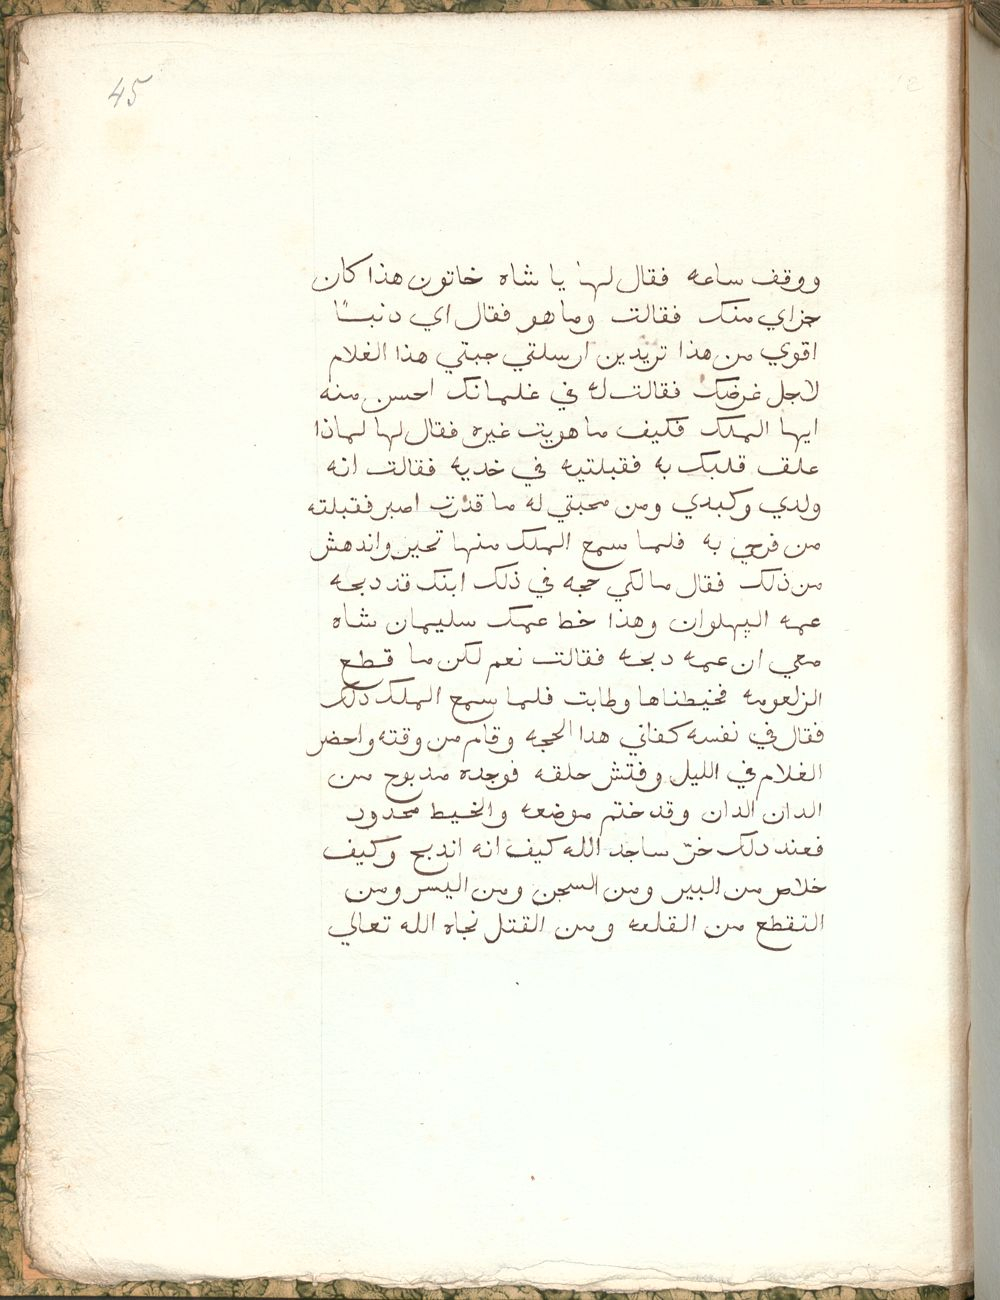 45
ووقف ساعه فقال لها يا شاه خاتون هذا كان
جزاي منك فقالت وما هو فقال اي دنبًا
اقوي من هذا تريدين ارسلتي جبتي هذا الغلام
لاجل غرضك فقالت له في غلمانك احسن منه
ايها الملك فكيف ما هويت غيره فقال لها لماذا
علق قلبك به فقبلتيه في خديه فقالت انه
ولدي وكبدي ومن محبتي له ما قدرت اصبر فقبلته
من فرحي به فلما سمع الملك منها تحير واندهش
من ذلك فقال ما لكي حجه في ذلك ابنك قد دبحه
عمه البهلوان وهذا خط عمك سليمان شاه
معي ان عمه دبحه فقالت نعم لكن ما قطع
الزلعومه فخيطناها وطابت فلما سمع الملك دلك
فقال في نفسه كفاني هدا الحجه وقام من وقته واحضر
الغلام في الليل وفتش حلقه فوجده مذبوح من
الدان الدان وقد ختم موضعه والخيط محدود
فعند دلك خرّ ساجد الله كيف انه اندبح وكيف
خلاص من البير ومن السجن ومن اليسر ومن
التقطع من القلعه ومن القتل نجاه الله تعالي